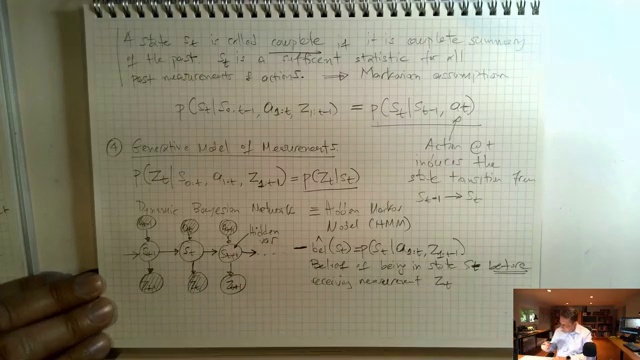 A state St is called complete if it is complete summary
of the past. St is a sufficient statistic for all
past measurements & actions. → Markovian assumption
p(St|S0:t-1, a1:t, Z1:t-1) = p(St|St-1, at)
Action @ t
induces the
state transition from
St-1 → St
④ Generative Model of Measurements
p(Zt|S0:t, a1:t, Z1:t-1) = p(Zt|St)
Dynamic Bayesian Network ≡ Hidden Markov
Model (HMM)
at-1 at at+1
Hidden
vars
St-1 St St+1 ...
Zt-1 Zt Zt+1
- bel(St) = p(St|a1:t, Z1:t-1)
Belief of being in state St before
receiving measurement Zt